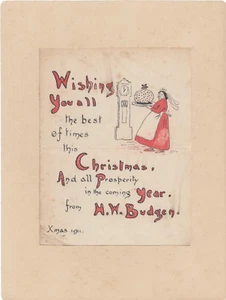 Wishing
You all
the best
of times
this
Christmas,
And all Prosperity
in the coming Year.
from H.W. Budgen.
Xmas 1911.